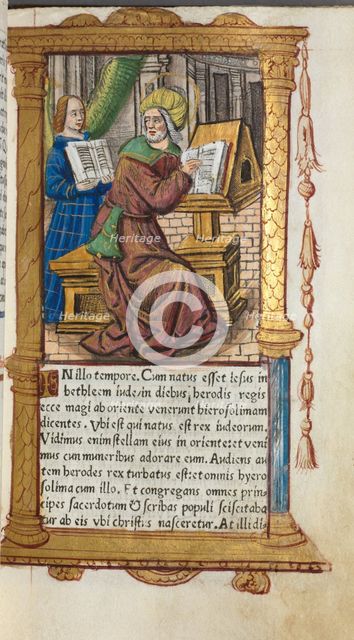 IN illo tempore. Cum natus esset iesus in
bethleem iude in diebus, herodis regis
ecce magi ab oriente venerunt hierosolimam
dicentes. Vbi est qui natus est rex iudeorum.
Vidimus enim stellam eius in oriente: et veni
mus cum muneribus adorare eum. Audiens au
tem herodes rex turbatus est: et omnis hyero
solima cum illo. Et congregans omnes prin
cipes sacerdotum & scribas populi sciscitaba
tur ab eis vbi christus nasceretur. At illi di